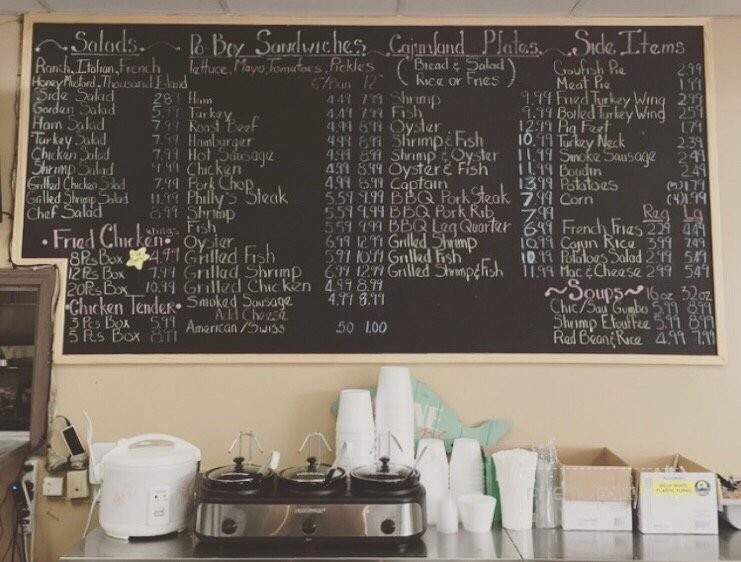 Salads
Ranch, Italian, French
Honey Mustard, Thousand Island
Side Salad
Garden Salad
Ham Salad 7.99
Turkey Salad 7.99
Chicken Salad 7.99
Shrimp Salad 9.99
Grilled Chicken Salad
Grilled Shrimp Salad 11.99
Chef Salad 8.99
Fried Chicken wings
8 Pcs Box 4.99
12 Pcs Box 7.99
20 Pcs Box 10.99
Chicken Tender
3 Pcs Box 5.99
5 Pcs Box 8.99
Po Boy Sandwiches
lettuce, Mayo, Tomatoes, Pickles
6"/Bun 12"
Ham 4.49 7.99
Turkey 4.49 7.99
Roast Beef 4.99 8.99
Hamburger 4.99 8.99
Hot Sausage 4.99 8.99
Chicken 4.99 8.99
Pork Chop 4.99 8.99
Philly's Steak 5.59 9.99
Shrimp 5.59 9.99
Fish 5.59 9.99
Oyster 6.99 12.99
Grilled Fish 5.99 10.99
Grilled Shrimp 6.99 12.99
Grilled Chicken 4.99 8.99
Smoked Sausage 4.99 8.99
Add Cheese
American/Swiss .50 1.00
Cajunland Plates
(Bread & Salad
Rice or Fries)
Shrimp 9.99
Fish 9.99
Oyster 12.99
Shrimp & Fish 10.99
Shrimp & Oyster 11.99
Oyster & Fish 11.99
Captain 13.99
BBQ Pork Steak 7.99
BBQ Pork Rib 7.99
BBQ Leg Quarter 6.99
Grilled Shrimp 10.99
Grilled Shrimp & Fish 11.99
Side Items
Crawfish Pie 2.99
Meat Pie 1.99
Fried Turkey Wing 2.99
Boiled Turkey Wing
Pig Feet 1.79
Turkey Neck 2.39
Smoke Sausage 2.49
Boudin 2.49
Potatoes 1.79
Corn 1.99
Reg Lg
French Fries 2.29 4.49
Cajun Rice 3.99 7.49
Potatoes Salad 2.99 5.49
Mac & Cheese 2.99 5.49
Soups 16oz 32oz
Chic/Sau Gumbo 5.99 8.99
Shrimp Etouffee 5.99 8.99
Red Bean & Rice 4.99 7.99